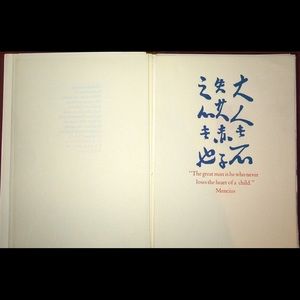 大人者不
失其赤子
之心者也
"The great man is he who never
loses the heart of a child."
Mencius